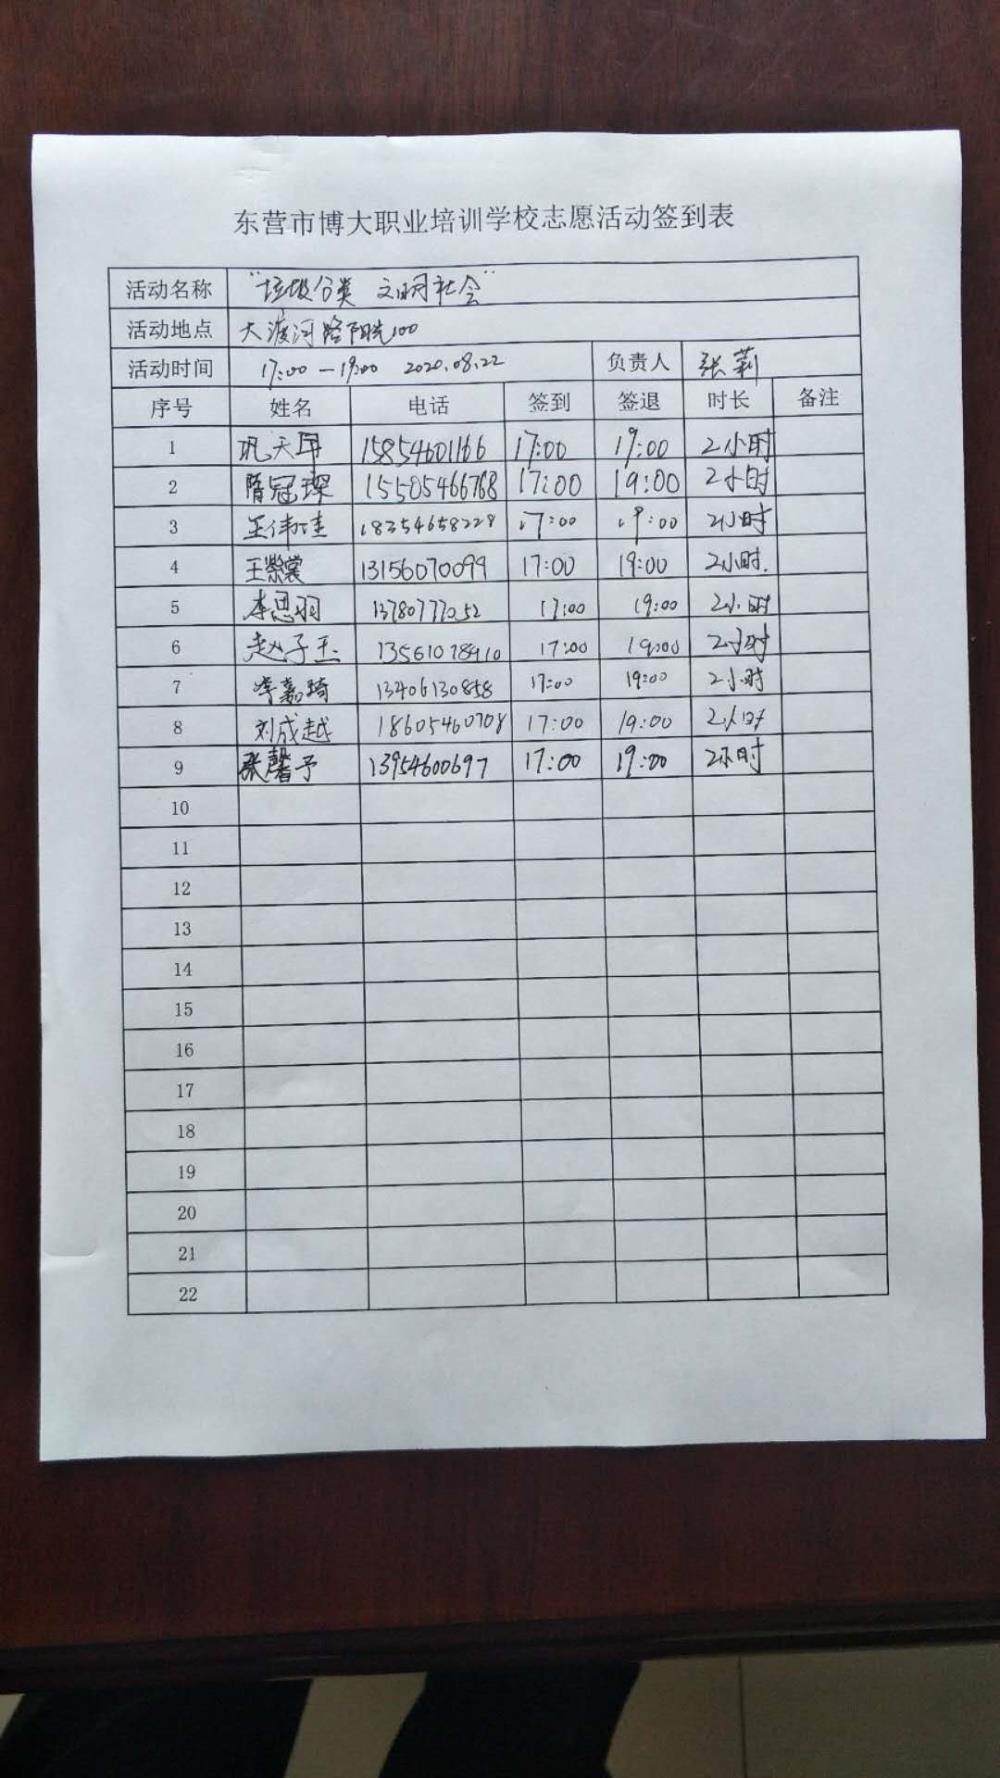 东营市博大职业培训学校志愿活动签到表
活动名称 "垃圾分类 文明社会"
活动地点 大渡河路阳光100
活动时间 17:00—19:00 2020.08.22 负责人 张莉
序号 姓名 电话 签到 签退 时长 备注
1 巩天 15854601166 17:00 19:00 2小时
2 隋冠琛 15505466768 17:00 19:00 2小时
3 王伟佳 18254658229 17:00 19:00 2小时
4 王紫裳 13156070099 17:00 19:00 2小时.
5 李思羽 13780777052 17:00 19:00 2小时
6 赵子玉 13561078910 17:00 19:00 2小时
7 李嘉琦 13406130858 17:00 19:00 2小时
8 刘成越 18605460708 17:00 19:00 2小时
9 张馨予 13954600697 17:00 19:00 2小时
10
11
12
13
14
15
16
17
18
19
20
21
22